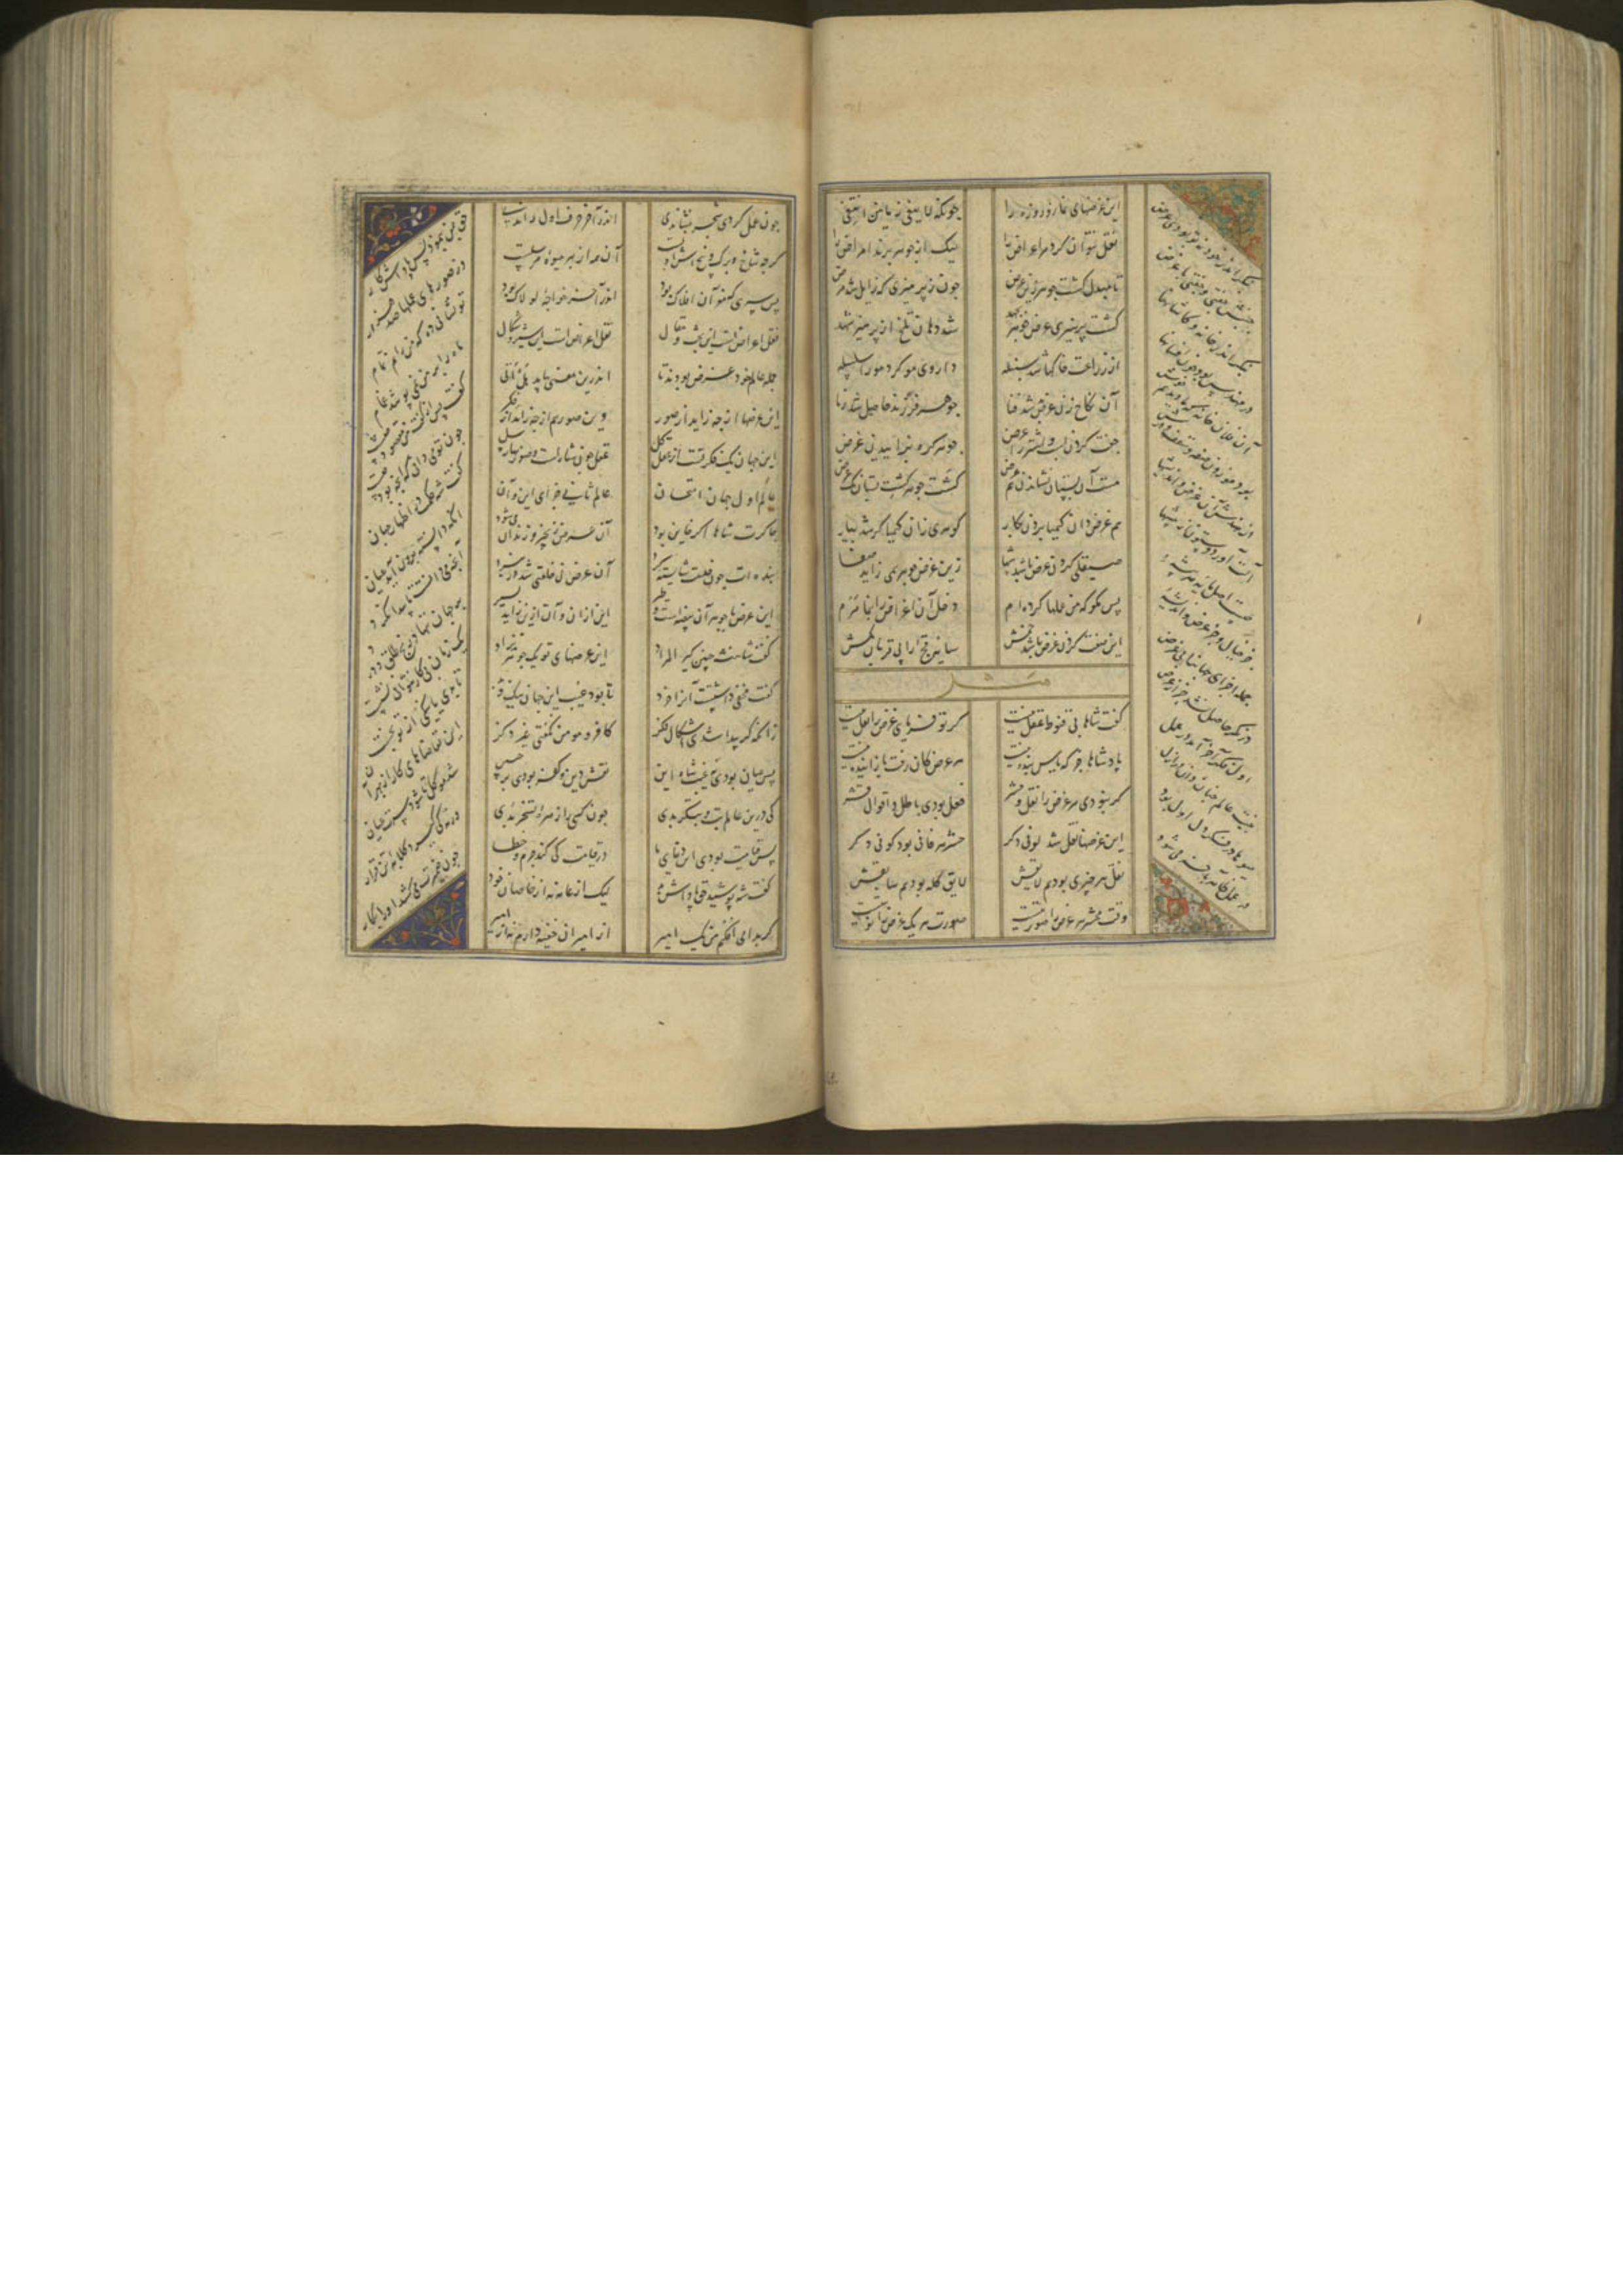 این عرضهای نماز و روزه را
جونکه لا یبقی زمانین انتفی
نقل نتوان کرد مر اعراض را
لیک از جوهر برند امراض را
تا مبدل کشت جوهر زین عرض
جون ز پرهیزی که زایل شد مرض
کشت پرهیز عرض جوهر بجهد
شد دهان تلخ از پرهیز شهد
از زراعت خاکها شد سنبله
داروی مو کرد مو را سلسله
آن نکاح زن عرض بد شد فنا
جوهر فرزند حاصل شد ز ما
جفت کردن اسب و اشتر را عرض
جوهر کره بزاییدن غرض
هست آن بستان نشاندن هم عرض
کشت جوهر کشت بستان نک غرض
هم عرض دان کیمیا بردن بکار
جوهری زان کیمیا کر شد بیار
صیقلی کردن عرض باشد شها
زین عرض جوهر همی زاید صفا
پس مکو که من عملها کرده ام
دخل آن اعراض را بنما مرم
این صفت کردن عرض باشد خمش
سایه بز را پی قربان مکش
مثل
کفت شاها بی قنوط عقل نیست
کر تو فرمایی عرض را نقل نیست
پادشاها جز که یاس بنده نیست
هر عرض کان رفت باز آینده نیست
کر نبودی مر عرض را نقل و حشر
فعل بودی باطل و اقوال قشر
این عرضها نقل شد لونی دکر
حشر هر فانی بود کونی دکر
نقل هر چیزی بود هم لایقش
لایق کله بود هم سایقش
وقت محشر هر عرض را صورتیست
صورت هر یک عرض را نوبتیست
بنکر اندر خود نه تو بودی عرض
جنبش جفتی و جفتی با غرض
بنکر اندر خانه و کاشانها
در مهندس بود چون افسانها
آن فلان خانه که ما دیدیم خوش
بود موزون صفه و سقف و درش
از مهندس آن عرض و اندیشها
آلت آورد و ستون از بیشها
چیست اصل و مایه هر پیشه
جز خیال و جز عرض و اندیشه
جمله اجزای جهان را بی غرض
در نکر حاصل نشد جز از عرض
اول فکر آخر آمد در عمل
بنیت عالم چنان دان در ازل
میوها در فکر دل اول بود
در عمل ظاهر بآخر می شود
جون عمل کردی شجر بنشاندی
اندر آخر حرف اول خواندی
کرجه شاخ و برک و بیخش اولست
آن همه از بهر میوه مرسلست
پس سری که مغز آن افلاک بود
اندر آخر خواجه لولاک بود
نقل اعراضست این بحث و مقال
نقل اعراضست این شیر و شکال
جمله عالم خود عرض بودند تا
اندرین معنی بیاید هل اتی
این عرضها از چه زاید از صور
وین صور هم از چه زاید از فکر
این جهان یک فکرتست از عقل کل
عقل چون شاهست و صورتها رسل
عالم اول جهان امتحان
عالم ثانی جزای این و آن
چاکرت شاها اکر خاین بود
آن عرض زنجیر و زندان می شود
بنده ات چون خدمت شایسته کرد
آن عرض نی خلعتی شد در نبرد
این عرض با جوهر آن بیضه است و طیر
این از آن و آن ازین زاید بسیر
کفت شاهنشه چنین کیر المراد
این عرضهای تو یک جوهر نزاد
کفت مخفی داشتست آنرا خرد
تا بود غیب این جهان نیک و بد
زانکه کر پیدا شدی اشکال فکر
کافر و مومن نکفتی غیر ذکر
پس عیان بودی نه غیب ای شاه این
نقش دین و کفر بودی بر جبین
کی درین عالم بت و بتکر بدی
چون کسی را زهره تسخر بدی
پس قیامت بودی این دنیای ما
در قیامت کی کند جرم و خطا
کفت شه پوشید حق پاداش بد
لیک از عامه نه از خاصان خود
کر بدامی افکنم من یک امیر
از امیران خفیه دارم نه از وزیر
حق بمن بنمود پس پاداش کار
وز صورهای عملها صد هزار
تو نشانی ده که من دانم تمام
ماه را بر من نمی پوشد غمام
کفت پس از کفت من مقصود چیست
چون تو می دانی که آنچه بود چیست
کفت شه حکمت در اظهار جهان
آنکه دانسته برون آید عیان
آنچه می دانست تا پیدا نکرد
بر جهان ننهاد رنج طلق و درد
یک زمان بی کار نتوانی نشست
تا بدی یا نیکیی از تو نجست
این تقاضاهای کار از بهر آن
شد موکل تا شود سرت عیان
ورنه کی کیرد کلابه تن قرار
چون ضمیرت می کشد او را بکار